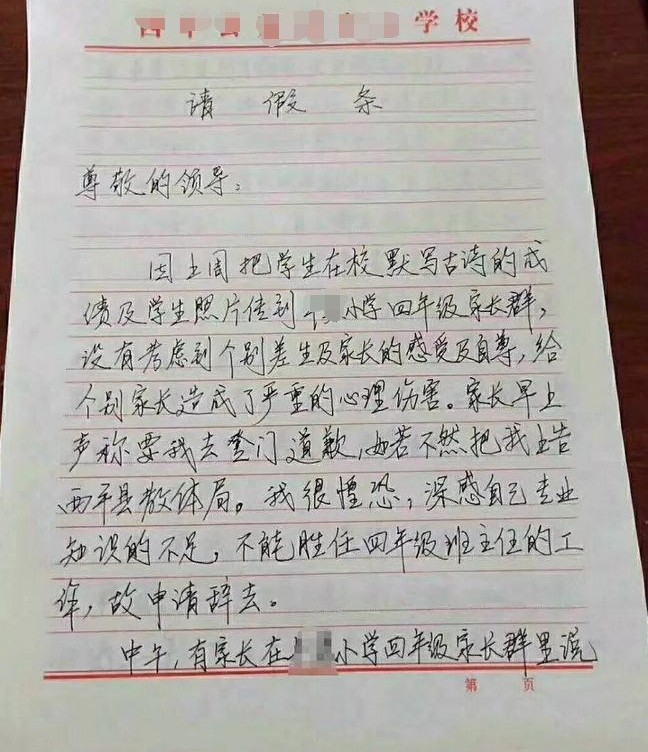 学校
请假条
尊敬的领导：
因上周把学生在校默写古诗的成
绩及学生照片传到小学四年级家长群，
没有考虑到个别差生及家长的感受及自尊，给
个别家长造成了严重的心理伤害。家长早上
声称要我去登门道歉，如若不然把我上告
西平县教体局。我很惶恐，深感自己专业
知识的不足，不能胜任四年级班主任的工
作，故申请辞去。
中午，有家长在小学四年级家长群里说
第 页